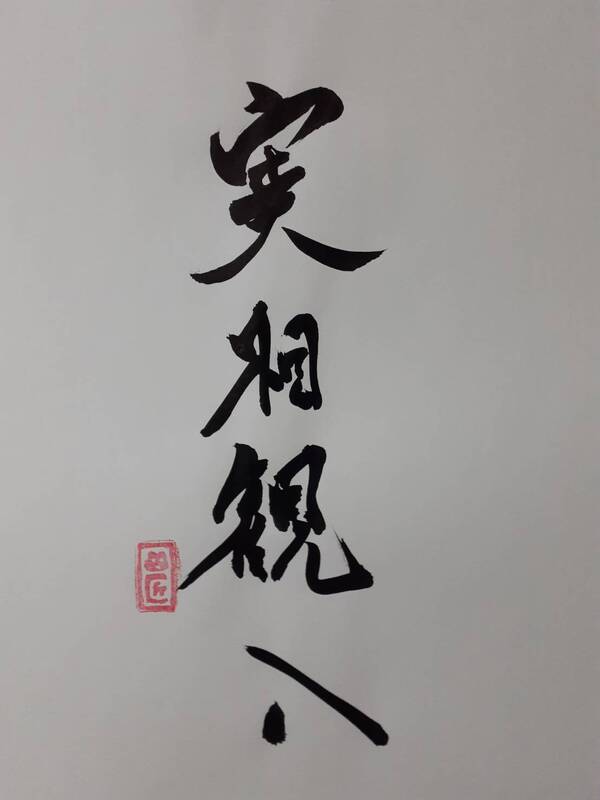 実相観入